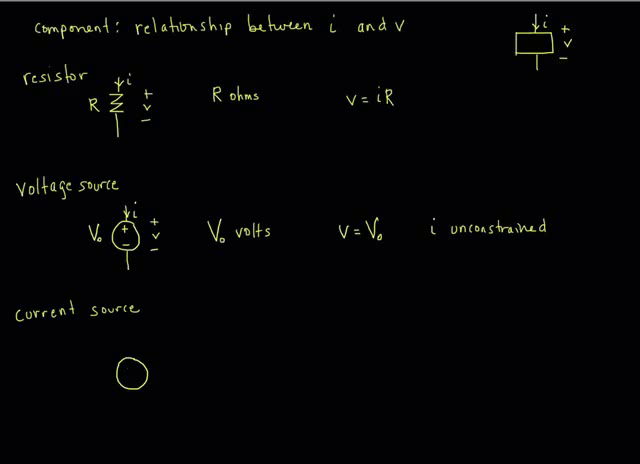 component: relationship between i and v
i
+
v
−
resistor
i
R
+
v
−
R ohms
v = iR
Voltage source
i
V₀
+
−
+
v
−
V₀ volts
v = V₀
i unconstrained
current source